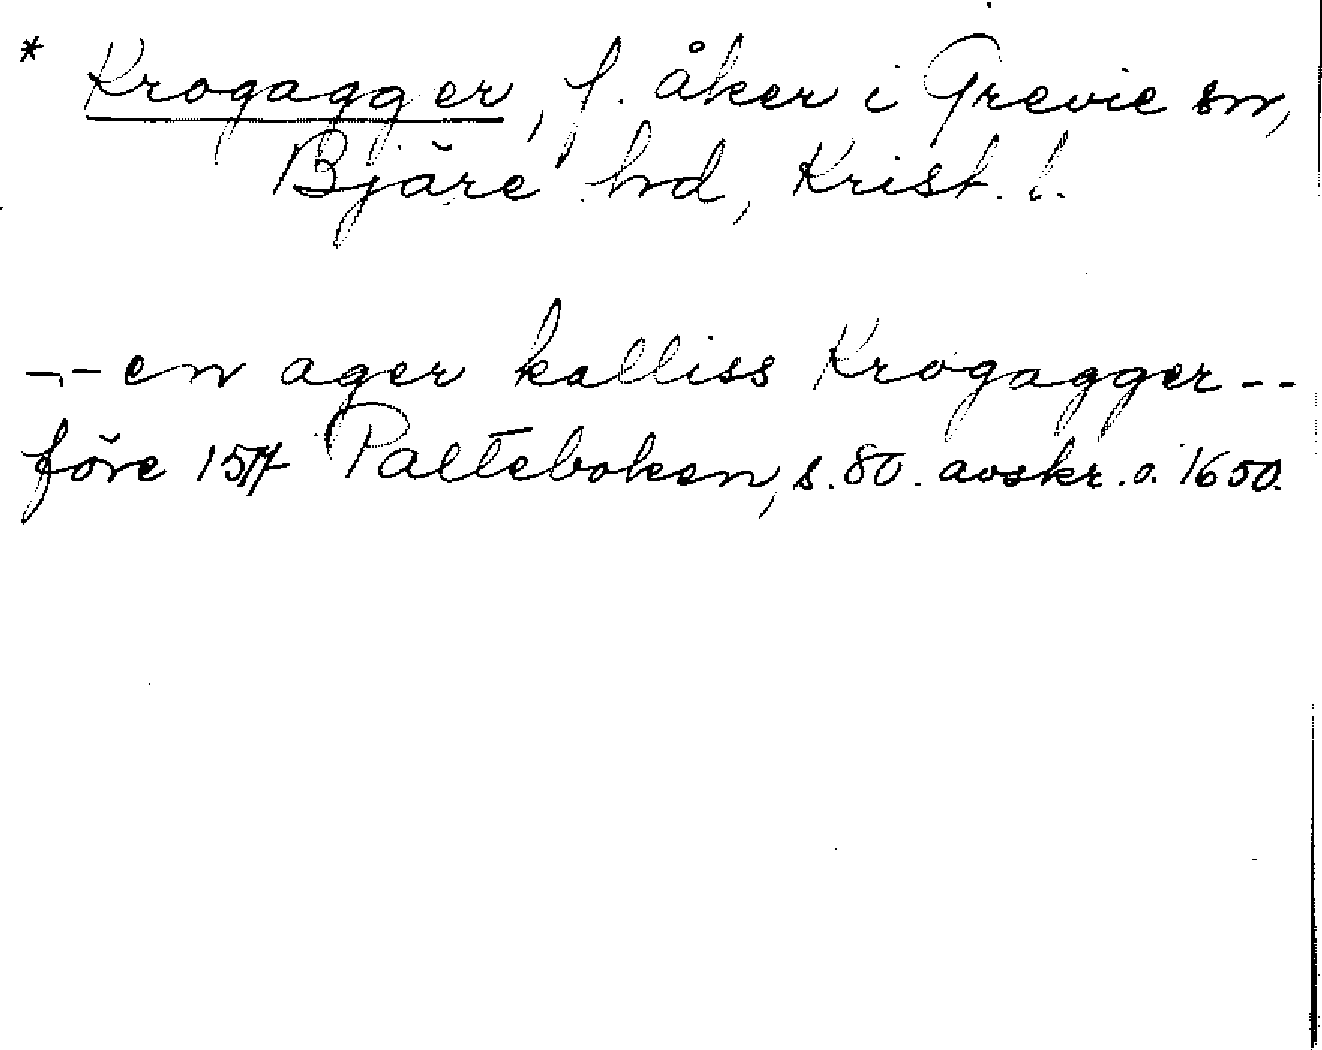 * Krogagger, f. åker i Grevie sn,
Bjäre hd, Krist. l.
-,- en ager kalliss Krogagger --
före 1577 Palteboken, s. 80. avskr. o. 1650.